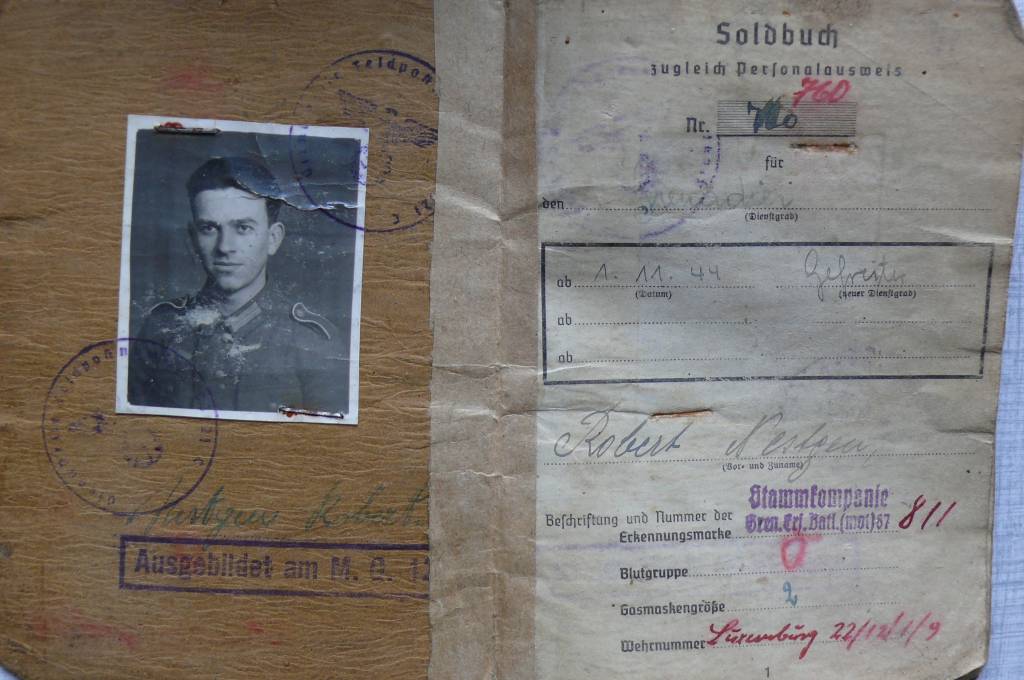 Ausgebildet am M. G.
Soldbuch
zugleich Personalausweis
760
Nr.
für
den
(Dienstgrad)
ab 1. 11. 44 Gefreiter
(Datum) (neuer Dienstgrad)
ab
ab
Robert
(Vor- und Zuname)
Beschriftung und Nummer der
Erkennungsmarke
Stammkompanie
Gren. Ers. Batl. (mot) 67 811
Blutgruppe O
Gasmaskengröße 2
Wehrnummer Luxemburg 22/12/1/9
1